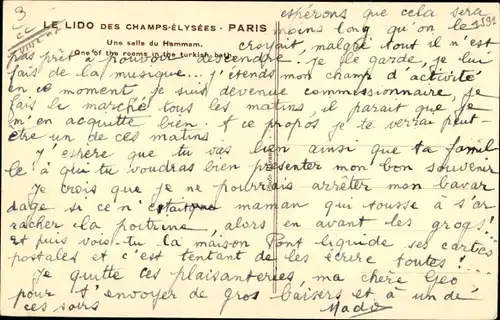 3
espérons que cela sera
LE LIDO DES CHAMPS-ÉLYSÉES - PARIS
moins long qu'on le
Une salle du Hammam.
croyait, malgré tout il n'est
One of the rooms in the turkish bath.
pas prêt à pouvoir descendre. Je le garde, je lui
fais de la musique... J'étends mon champ d'activité
en ce moment, je suis devenue commissionnaire, je
fais le marché tous les matins il parait que je
m'en acquitte bien. A ce propos je te verrai peut-
être un de ces matins!
J'espère que tu vas bien ainsi que ta famil
le à qui tu voudras bien présenter mon bon souvenir
Je crois que je ne pourrais arrêter mon bavar
dage si ce n'était que maman qui tousse à s'ar
racher la poitrine, alors en avant les grogs!
et puis vois-tu la maison Pont liquide ses cartes
postales et c'est tentant de les écrire toutes!
Je quitte ces plaisanteries, ma chère Géo
pour t'envoyer de gros baisers et à un de
ces soirs
Mado